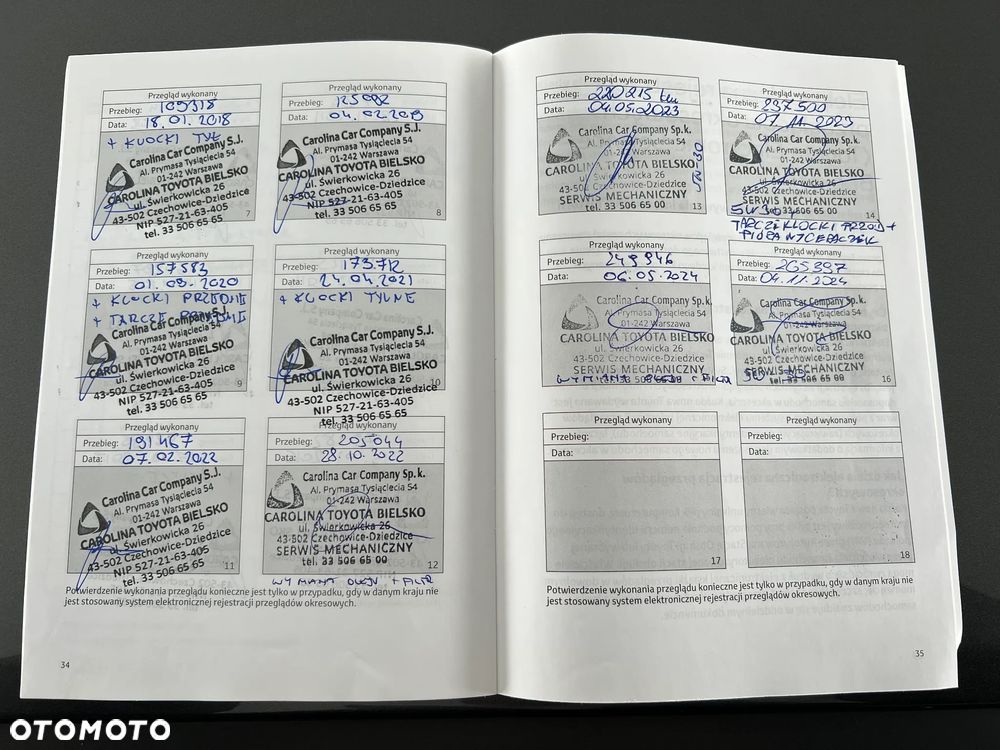 Przegląd wykonany
Przebieg: 109318
Data: 18.01.2018
+ KLOCKI TYŁ
Carolina Car Company S.J.
Al. Prymasa Tysiąclecia 54
01-242 Warszawa
CAROLINA TOYOTA BIELSKO
ul. Świerkowicka 26
43-502 Czechowice-Dziedzice
NIP 527-21-63-405
tel. 33 506 65 65
7
Przegląd wykonany
Przebieg: 125082
Data: 04.02.2019
Carolina Car Company S.J.
Al. Prymasa Tysiąclecia 54
01-242 Warszawa
CAROLINA TOYOTA BIELSKO
ul. Świerkowicka 26
43-502 Czechowice-Dziedzice
NIP 527-21-63-405
tel. 33 506 65 65
8
Przegląd wykonany
Przebieg: 157583
Data: 01.09.2020
+ KLOCKI PRZEDNIE
+ TARCZE PRZEDNIE
Carolina Car Company S.J.
Al. Prymasa Tysiąclecia 54
01-242 Warszawa
CAROLINA TOYOTA BIELSKO
ul. Świerkowicka 26
43-502 Czechowice-Dziedzice
NIP 527-21-63-405
tel. 33 506 65 65
9
Przegląd wykonany
Przebieg: 173.712
Data: 24.04.2021
+ KLOCKI TYLNE
Carolina Car Company S.J.
Al. Prymasa Tysiąclecia 54
01-242 Warszawa
CAROLINA TOYOTA BIELSKO
ul. Świerkowicka 26
43-502 Czechowice-Dziedzice
NIP 527-21-63-405
tel. 33 506 65 65
10
Przegląd wykonany
Przebieg: 191467
Data: 07.02.2022
Carolina Car Company S.J.
Al. Prymasa Tysiąclecia 54
01-242 Warszawa
CAROLINA TOYOTA BIELSKO
ul. Świerkowicka 26
43-502 Czechowice-Dziedzice
NIP 527-21-63-405
tel. 33 506 65 65
11
Przegląd wykonany
Przebieg: 205044
Data: 28.10.2022
Carolina Car Company Sp.k.
Al. Prymasa Tysiąclecia 54
01-242 Warszawa
CAROLINA TOYOTA BIELSKO
ul. Świerkowicka 26
43-502 Czechowice-Dziedzice
SERWIS MECHANICZNY
tel. 33 506 65 00
12
WYMIANA OLEJU + FILTR
Potwierdzenie wykonania przeglądu konieczne jest tylko w przypadku, gdy w danym kraju nie
jest stosowany system elektronicznej rejestracji przeglądów okresowych.
34
Przegląd wykonany
Przebieg: 220215 km
Data: 04.05.2023
Carolina Car Company Sp.k.
Al. Prymasa Tysiąclecia 54
01-242 Warszawa
CAROLINA TOYOTA BIELSKO
ul. Świerkowicka 26
43-502 Czechowice-Dziedzice
SERWIS MECHANICZNY
tel. 33 506 65 00
5W-30
13
Przegląd wykonany
Przebieg: 237500
Data: 07.11.2023
Carolina Car Company Sp.k.
Al. Prymasa Tysiąclecia 54
01-242 Warszawa
CAROLINA TOYOTA BIELSKO
ul. Świerkowicka 26
43-502 Czechowice-Dziedzice
SERWIS MECHANICZNY
tel. 33 506 65 00
14
5W30 +
TARCZE KLOCKI PRZOD +
PIÓRA WYCIERACZEK
Przegląd wykonany
Przebieg: 249946
Data: 06.05.2024
Carolina Car Company Sp.k.
Al. Prymasa Tysiąclecia 54
01-242 Warszawa
CAROLINA TOYOTA BIELSKO
ul. Świerkowicka 26
43-502 Czechowice-Dziedzice
SERWIS MECHANICZNY
WYMIANA OLEJU + FILTR
Przegląd wykonany
Przebieg: 265397
Data: 04.11.2024
Carolina Car Company Sp.k.
Al. Prymasa Tysiąclecia 54
01-242 Warszawa
CAROLINA TOYOTA BIELSKO
ul. Świerkowicka 26
43-502 Czechowice-Dziedzice
SERWIS MECHANICZNY
tel. 33 506 65 00
16
Przegląd wykonany
Przebieg:
Data:
17
Przegląd wykonany
Przebieg:
Data:
18
Potwierdzenie wykonania przeglądu konieczne jest tylko w przypadku, gdy w danym kraju nie
jest stosowany system elektronicznej rejestracji przeglądów okresowych.
35
OTOMOTO